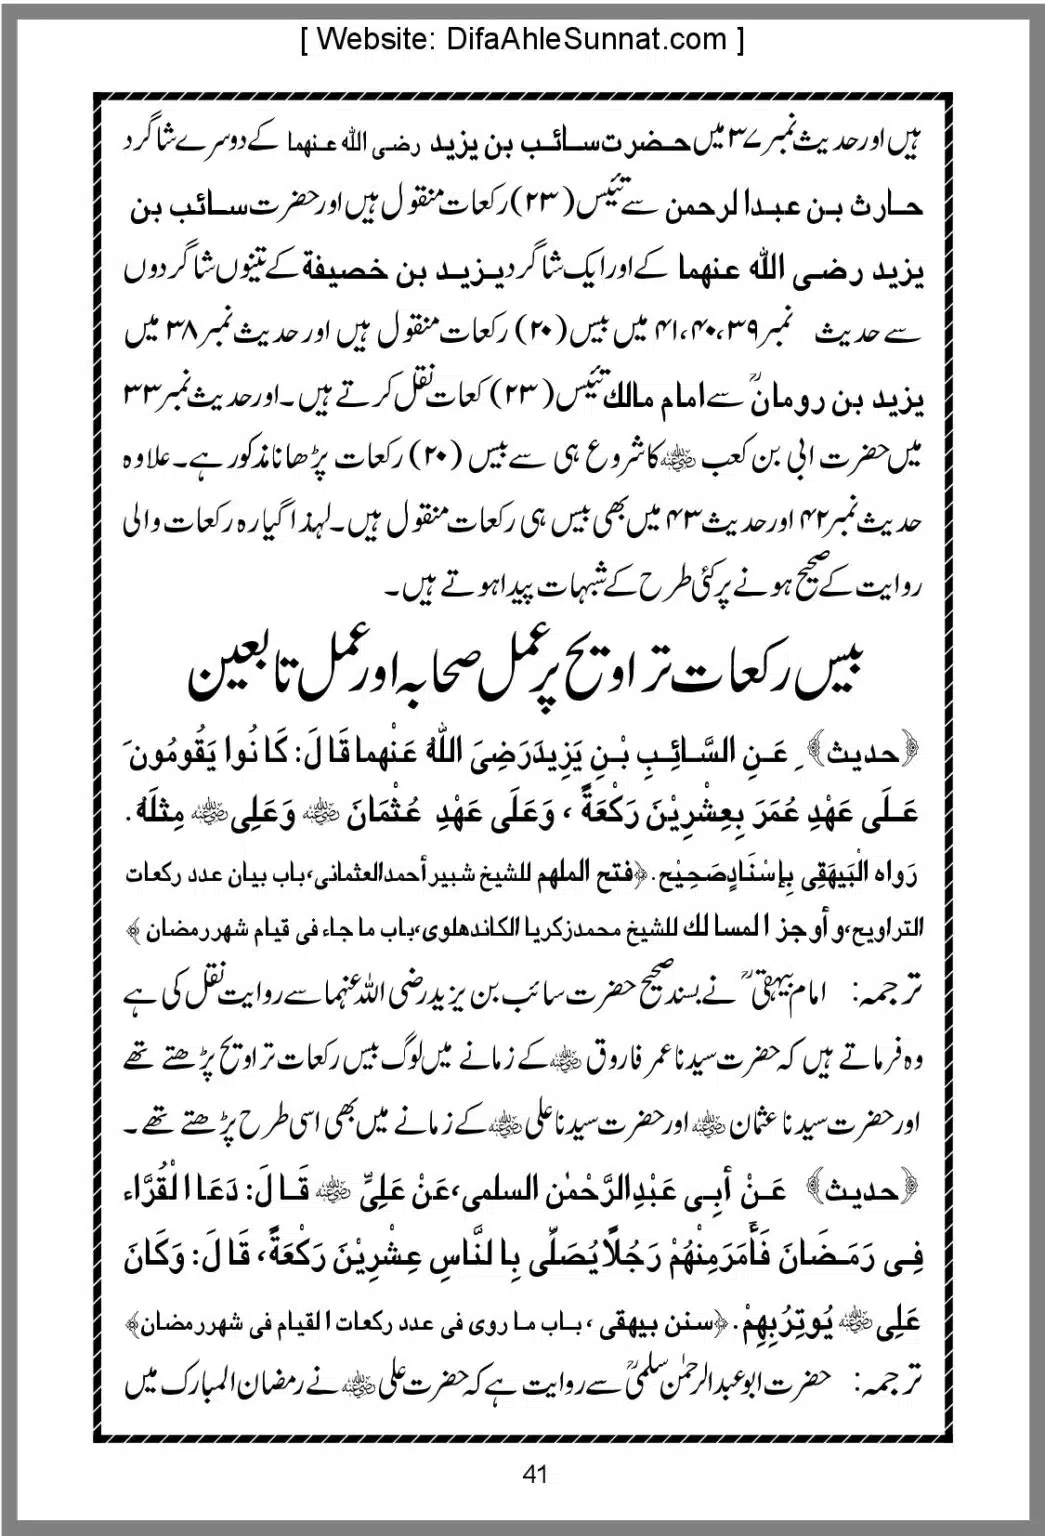 [ Website: DifaAhleSunnat.com ]
ہیں اور حدیث نمبر ۳۷ میں حضرت سائب بن یزید رضی اللہ عنہما کے دوسرے شاگرد
حارث بن عبدالرحمن سے تئیس (۲۳) رکعات منقول ہیں اور حضرت سائب بن
یزید رضی اللہ عنہما کے اور ایک شاگرد یزید بن خصیفة کے تینوں شاگردوں
سے حدیث نمبر ۳۹،۴۰،۴۱ میں بیس (۲۰) رکعات منقول ہیں اور حدیث نمبر ۳۸ میں
یزید بن رومانؒ سے امام مالک تئیس (۲۳) کعات نقل کرتے ہیں۔ اور حدیث نمبر ۳۳
میں حضرت ابی بن کعب ؓ کا شروع ہی سے بیس (۲۰) رکعات پڑھانا مذکور ہے۔ علاوہ
حدیث نمبر ۴۲ اور حدیث ۴۳ میں بھی بیس ہی رکعات منقول ہیں۔ لہذا گیارہ رکعات والی
روایت کے صحیح ہونے پر کئی طرح کے شبہات پیدا ہوتے ہیں۔
بیس رکعات تراویح پر عمل صحابہ اور عمل تابعین
﴿حدیث﴾ عَنِ السَّائِبِ بْنِ يَزِيدَ رَضِىَ اللهُ عَنْهما قَالَ: كَانُوا يَقُومُونَ
عَلَى عَهْدِ عُمَرَ بِعِشْرِيْنَ رَكْعَةً ، وَعَلَى عَهْدِ عُثْمَانَ ؓ وَعَلِى ؓ مِثْلَهُ.
رَوَاه الْبَيهَقِى بِإسْنَادٍ صَحِيْح. ﴿فتح الملهم للشيخ شبير أحمد العثمانى،باب بيان عدد ركعات
التراويح،و أوجز المسالك للشيخ محمد زكريا الكاندهلوى،باب ما جاء فى قيام شهر رمضان ﴾
ترجمہ: امام بیہقیؒ نے بسند صحیح حضرت سائب بن یزید رضی اللہ عنہما سے روایت نقل کی ہے
وہ فرماتے ہیں کہ حضرت سیدنا عمر فاروق ؓ کے زمانے میں لوگ بیس رکعات تراویح پڑھتے تھے
اور حضرت سیدنا عثمان ؓ اور حضرت سیدنا علی ؓ کے زمانے میں بھی اسی طرح پڑھتے تھے۔
﴿حدیث﴾ عَنْ أبِى عَبْدِالرَّحْمٰنِ السلمى،عَنْ عَلِىٍّ ؓ قَالَ: دَعَا الْقُرَّاء
فِى رَمَضَانَ فَأَمَرَ مِنْهُمْ رَجُلًا يُصَلِّى بِالنَّاسِ عِشْرِيْنَ رَكْعَةً، قَالَ: وَكَانَ
عَلِى ؓ يُوتِرُ بِهِمْ. ﴿سنن بيهقى ، باب ما روى فى عدد ركعات القيام فى شهر رمضان﴾
ترجمہ: حضرت ابو عبدالرحمٰن سلمیؒ سے روایت ہے کہ حضرت علی ؓ نے رمضان المبارک میں
41